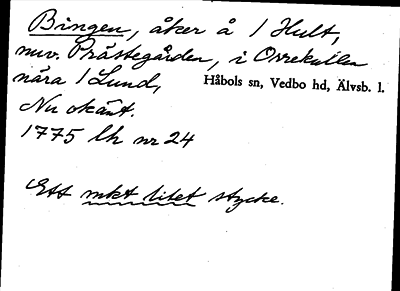 Bingen, åker å 1 Hult,
nuv. Prästegården, i Orrekullen
nära 1 Lund,
Håbols sn, Vedbo hd, Älvsb. l.
Nu okänt.
1775 lh nr 24
Ett mkt litet stycke.